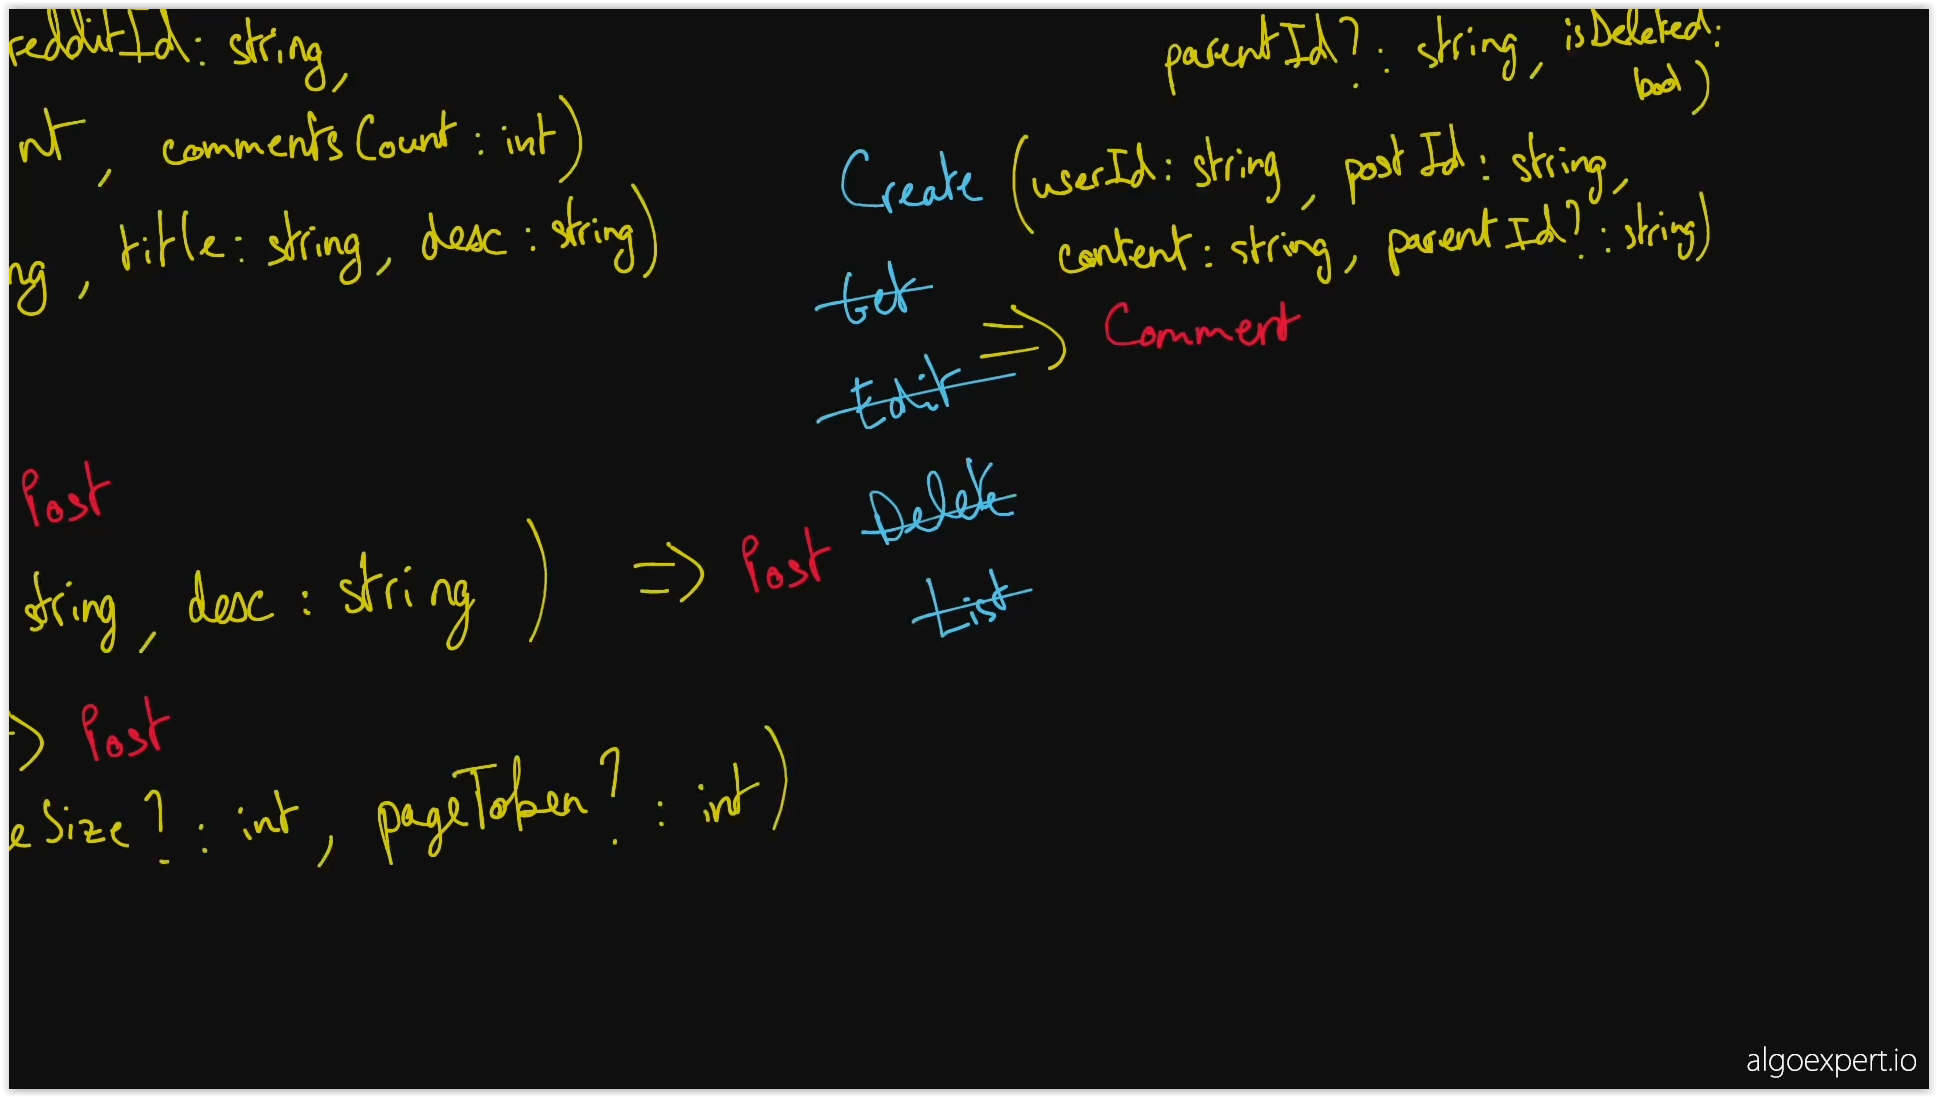 redditId: string,
nt, commentsCount: int)
ng, title: string, desc: string)
Post
string, desc: string) => Post
=> Post
eSize?: int, pageToken?: int)
parentId?: string, isDeleted:
bool)
Create (userId: string, postId: string,
content: string, parentId?: string)
Get
=> Comment
Edit
Delete
List
algoexpert.io